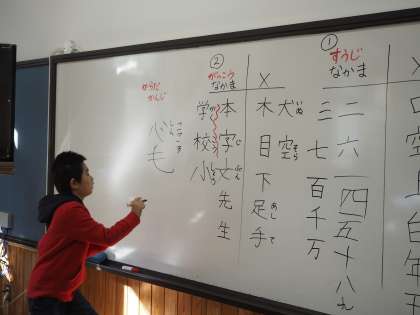 ①
すうじ
なかま
二六一四五十八九
三七百千万
×
犬いぬ空そら
木目下足あし手て
②
がっこう
なかま
本字じ文ぶん先生
学校小
からだ
かんじ
心毛